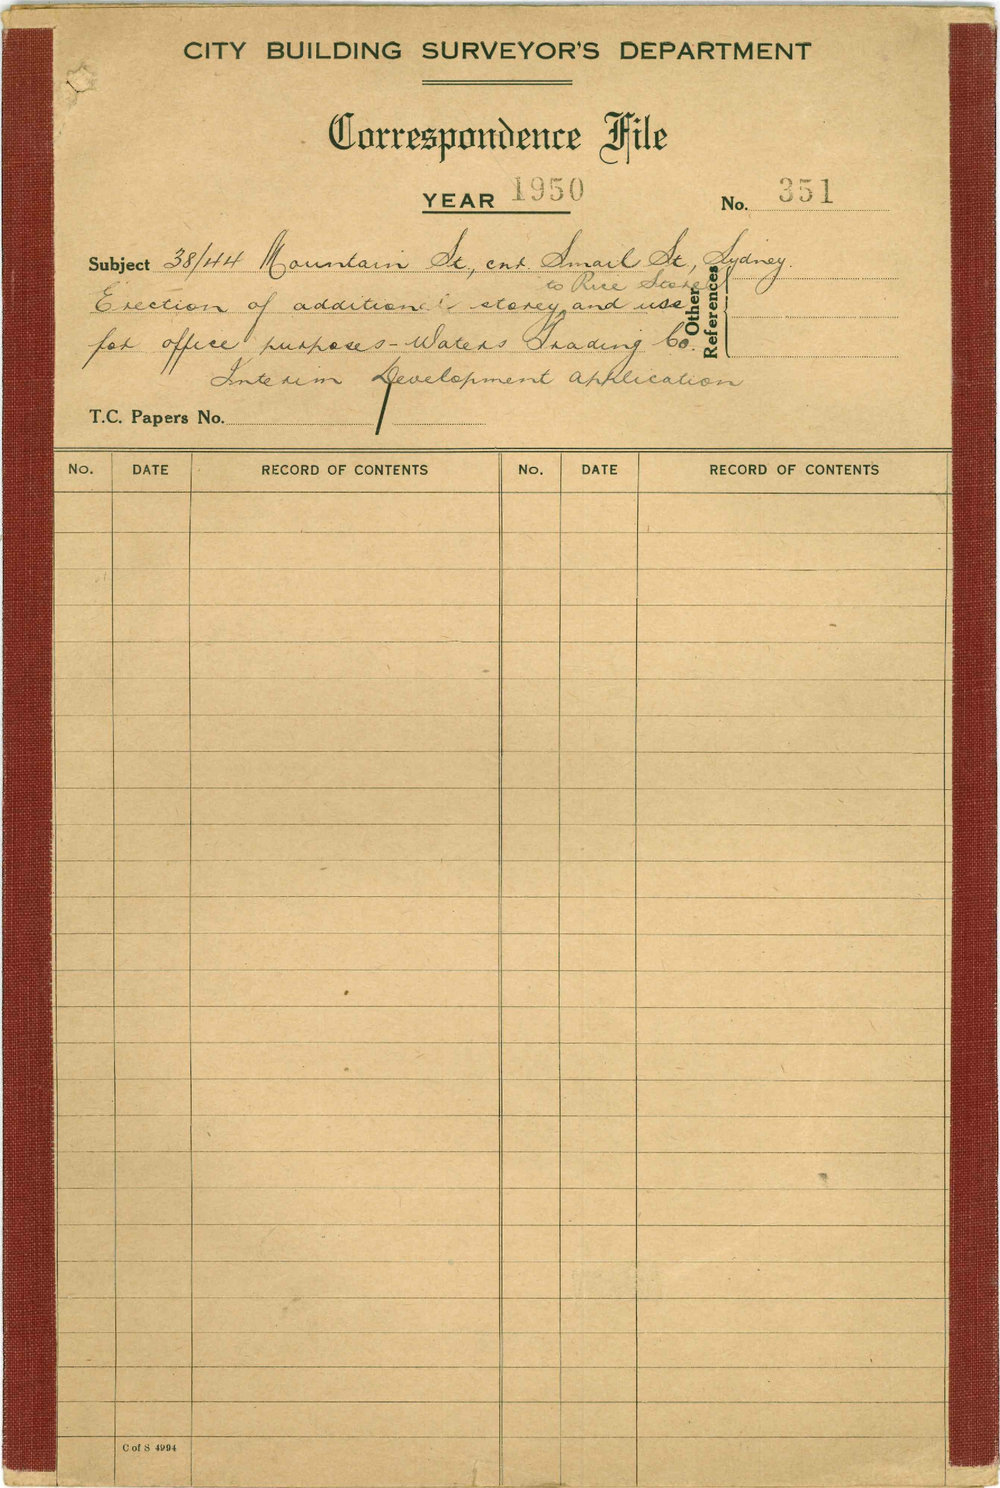 CITY BUILDING SURVEYOR'S DEPARTMENT
Correspondence File
YEAR 1950
No. 351
Subject 38/44 Mountain St., cnr. Smail St, Sydney.
to Rice Store
Erection of additional storey and use
for office purposes - Waters Trading Co.
Interim Development Application
Other References
T.C. Papers No.
No. DATE RECORD OF CONTENTS No. DATE RECORD OF CONTENTS
C of S 4994